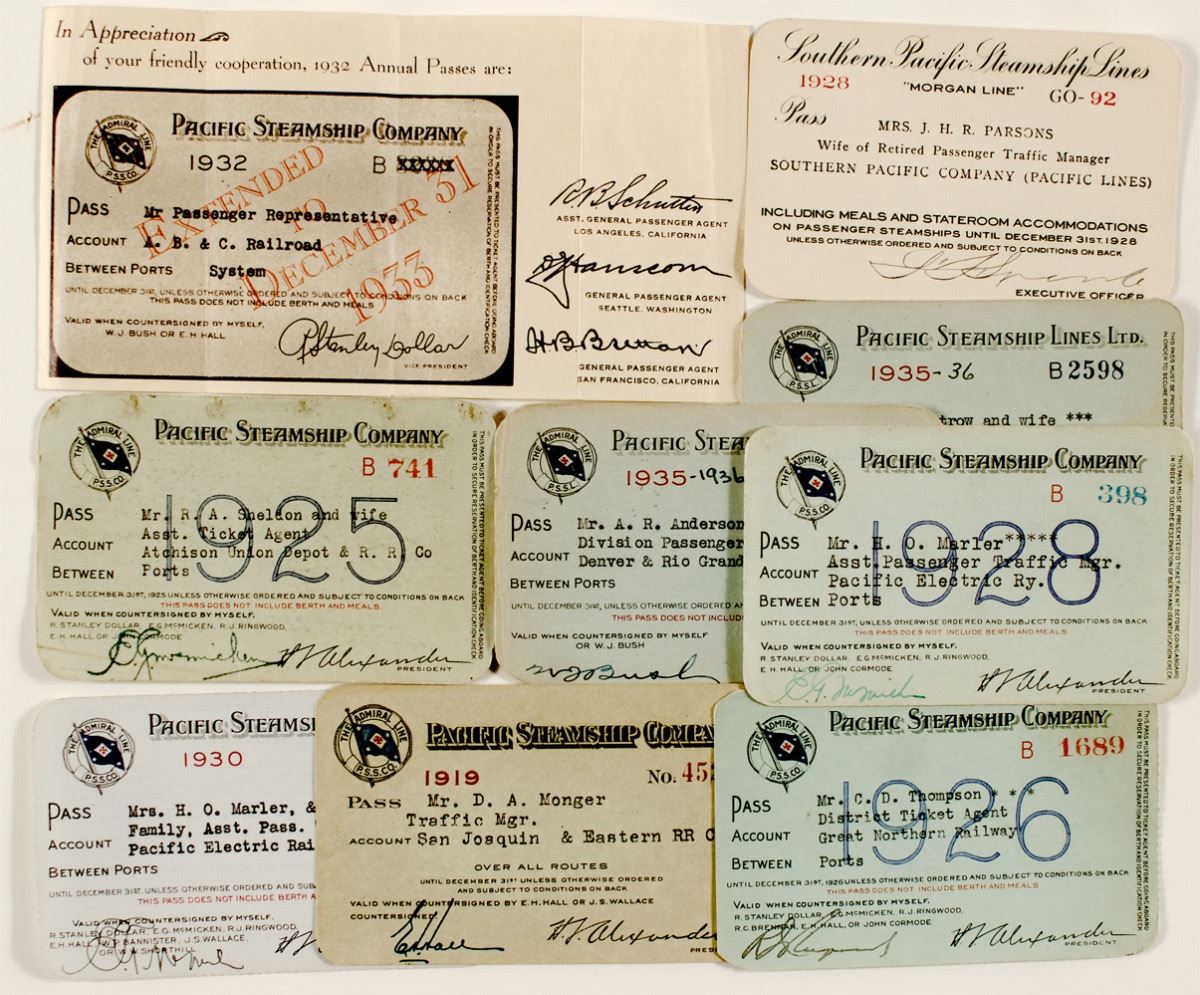 In Appreciation
of your friendly cooperation, 1932 Annual Passes are:
THE ADMIRAL LINE
P.S.S.CO.
PACIFIC STEAMSHIP COMPANY
1932 B XXXXXX
EXTENDED
TO
DECEMBER 31
1933
PASS Mr Passenger Representative
ACCOUNT A. B. & C. Railroad
BETWEEN PORTS System
UNTIL DECEMBER 31ST, UNLESS OTHERWISE ORDERED AND SUBJECT TO CONDITIONS ON BACK
THIS PASS DOES NOT INCLUDE BERTH AND MEALS
VALID WHEN COUNTERSIGNED BY MYSELF,
W. J. BUSH OR E. H. HALL
R Stanley Dollar
VICE-PRESIDENT
THIS PASS MUST BE PRESENTED TO TICKET AGENT BEFORE GOING ABOARD
IN ORDER TO SECURE RESERVATION OF BERTH AND IDENTIFICATION CHECK
ASST. GENERAL PASSENGER AGENT
LOS ANGELES, CALIFORNIA
GENERAL PASSENGER AGENT
SEATTLE, WASHINGTON
GENERAL PASSENGER AGENT
SAN FRANCISCO, CALIFORNIA
Southern Pacific Steamship Lines
1928 "MORGAN LINE" GO- 92
Pass
MRS. J. H. R. PARSONS
Wife of Retired Passenger Traffic Manager
SOUTHERN PACIFIC COMPANY (PACIFIC LINES)
INCLUDING MEALS AND STATEROOM ACCOMMODATIONS
ON PASSENGER STEAMSHIPS UNTIL DECEMBER 31ST. 1928
UNLESS OTHERWISE ORDERED AND SUBJECT TO CONDITIONS ON BACK
EXECUTIVE OFFICER
THE ADMIRAL LINE
P.S.S.L.
PACIFIC STEAMSHIP LINES LTD.
1935-36 B 2598
trow and wife ***
THIS PASS MUST BE PRESENTED
IN ORDER TO SECURE RESERVA
THE ADMIRAL LINE
P.S.S.CO.
PACIFIC STEAMSHIP COMPANY
B 741
1925
PASS Mr. R. A. Sheldon and wife
ACCOUNT Asst. Ticket Agent
Atchison Union Depot & R. R. Co
BETWEEN Ports
UNTIL DECEMBER 31ST, 1925 UNLESS OTHERWISE ORDERED AND SUBJECT TO CONDITIONS ON BACK
THIS PASS DOES NOT INCLUDE BERTH AND MEALS
VALID WHEN COUNTERSIGNED BY MYSELF,
R. STANLEY DOLLAR, E.G. MCMICKEN, R.J. RINGWOOD,
E.H. HALL OR JOHN CORMODE
E.G. McMicken H F Alexander
PRESIDENT
THIS PASS MUST BE PRESENTED TO TICKET AGENT BEFORE GOING ABOARD
IN ORDER TO SECURE RESERVATION OF BERTH AND IDENTIFICATION CHECK
THE ADMIRAL LINE
P.S.S.L.
PACIFIC STEA
1935-1936
PASS Mr. A. R. Anderson
ACCOUNT Division Passenger
Denver & Rio Grand
BETWEEN PORTS
UNTIL DECEMBER 31ST, UNLESS OTHERWISE ORDERED A
THIS PASS DOES NOT INCLUD
VALID WHEN COUNTERSIGNED BY MYSELF
OR W. J. BUSH
W J Bush
THE ADMIRAL LINE
P.S.S.CO.
PACIFIC STEAMSHIP COMPANY
B 398
1928
PASS Mr. H. O. Marler*****
ACCOUNT Asst. Passenger Traffic Mgr.
Pacific Electric Ry.
BETWEEN Ports
UNTIL DECEMBER 31ST, UNLESS OTHERWISE ORDERED AND SUBJECT TO CONDITIONS ON BACK
THIS PASS DOES NOT INCLUDE BERTH AND MEALS
VALID WHEN COUNTERSIGNED BY MYSELF,
R. STANLEY DOLLAR, E.G. MCMICKEN, R.J. RINGWOOD,
E.H. HALL, OR JOHN CORMODE
E.G. McMicken H F Alexander
PRESIDENT
THIS PASS MUST BE PRESENTED TO TICKET AGENT BEFORE GOING ABOARD
IN ORDER TO SECURE RESERVATION OF BERTH AND IDENTIFICATION CHECK
THE ADMIRAL LINE
P.S.S.CO.
PACIFIC STEAMS
1930
PASS Mrs. H. O. Marler, &
Family, Asst. Pass.
ACCOUNT Pacific Electric Rai
BETWEEN PORTS
UNTIL DECEMBER 31ST, UNLESS OTHERWISE ORDERED AND SUB
THIS PASS DOES NOT INCLUDE BERTH A
VALID WHEN COUNTERSIGNED BY MYSELF,
R. STANLEY DOLLAR, E.G. MCMICKEN, R.J. RINGWOOD,
E.H. HALL, W.P. BANNISTER, J.S. WALLACE,
THE ADMIRAL LINE
P.S.S.CO.
PACIFIC STEAMSHIP COMPA
1919 No. 452
PASS Mr. D. A. Monger
Traffic Mgr.
ACCOUNT San Josquin & Eastern RR C
OVER ALL ROUTES
UNTIL DECEMBER 31ST UNLESS OTHERWISE ORDERED
AND SUBJECT TO CONDITIONS ON BACK
VALID WHEN COUNTERSIGNED BY E.H. HALL OR J.S. WALLACE
COUNTERSIGNED
E.H. Hall H. F. Alexander
PRES
THE ADMIRAL LINE
P.S.S.CO.
PACIFIC STEAMSHIP COMPANY
B 1689
1926
PASS Mr. C. D. Thompson * * *
District Ticket Agent
ACCOUNT Great Northern Railway
BETWEEN Ports
UNTIL DECEMBER 31ST, 1926 UNLESS OTHERWISE ORDERED AND SUBJECT TO CONDITIONS ON BACK
THIS PASS DOES NOT INCLUDE BERTH AND MEALS
VALID WHEN COUNTERSIGNED BY MYSELF,
R. STANLEY DOLLAR, E.G. MCMICKEN, R.J. RINGWOOD,
R.G. BRENNAN, E.H. HALL, OR JOHN CORMODE
H F Alexander
PRESIDENT
THIS PASS MUST BE PRESENTED TO TICKET AGENT BEFORE GOING ABOARD
IN ORDER TO SECURE RESERVATION OF BERTH AND IDENTIFICATION CHECK